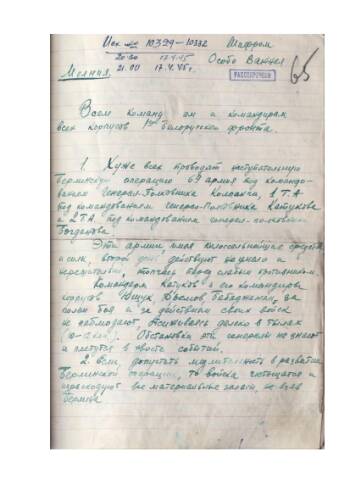 Исх № 10329-10332 Шифром
20.50 17.4.45 Особо Важная
21.00 17.4.45 г.
Молния.
РАССЕКРЕЧЕНО
65
Всем команд ам и командирам
всех корпусов 1го Белорусского фронта.
1. Хуже всех проводят наступательную
Берлинскую операцию 69 армия под командо-
ванием генерал-полковника Колпакчи, 1 Т.А
под командованием генерал-полковника Катукова
и 2 Т.А. под командованием генерал-полковника
Богданова.
Эти армии имея колоссальнейшие средства
и силы, второй день действуют неумело и
нерешительно, топчась перед слабым противником.
Командарм Катуков и его командиры
корпусов Ющук, Дрёмов, Бабаджанян, за
полем боя и за действием своих войск
не наблюдают, отсиживаясь далеко в тылах
(10-12 км). Обстановки эти генералы не знают
и плетутся в хвосте событий.
2. Если допустить медлительность в развитии
Берлинской операции, то войска истощатся и
израсходуют все материальные запасы, не взяв
Берлина